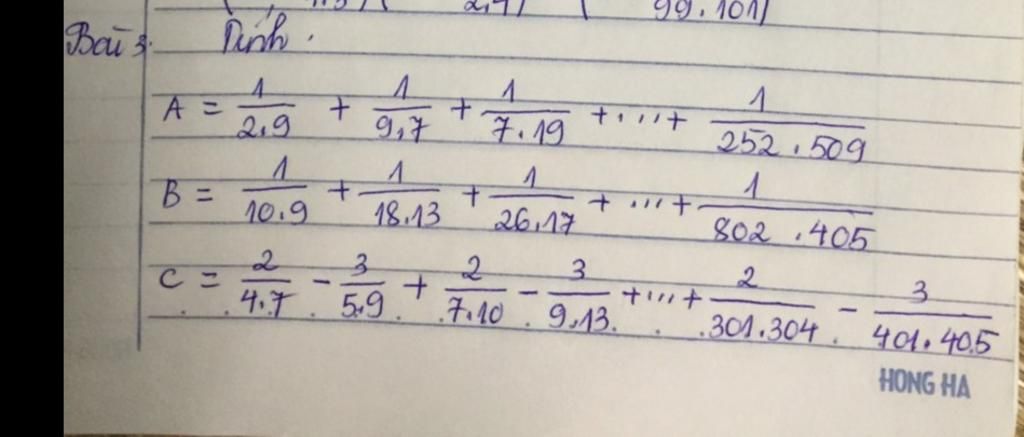 99.101)
Bài 3. Tính.
A = 1/2.9 + 1/9.7 + 1/7.19 + .... + 1/252.509
B = 1/10.9 + 1/18.13 + 1/26.17 + ... + 1/802.405
C = 2/4.7 - 3/5.9 + 2/7.10 - 3/9.13 + ... + 2/301.304 - 3/401.405
HONG HA